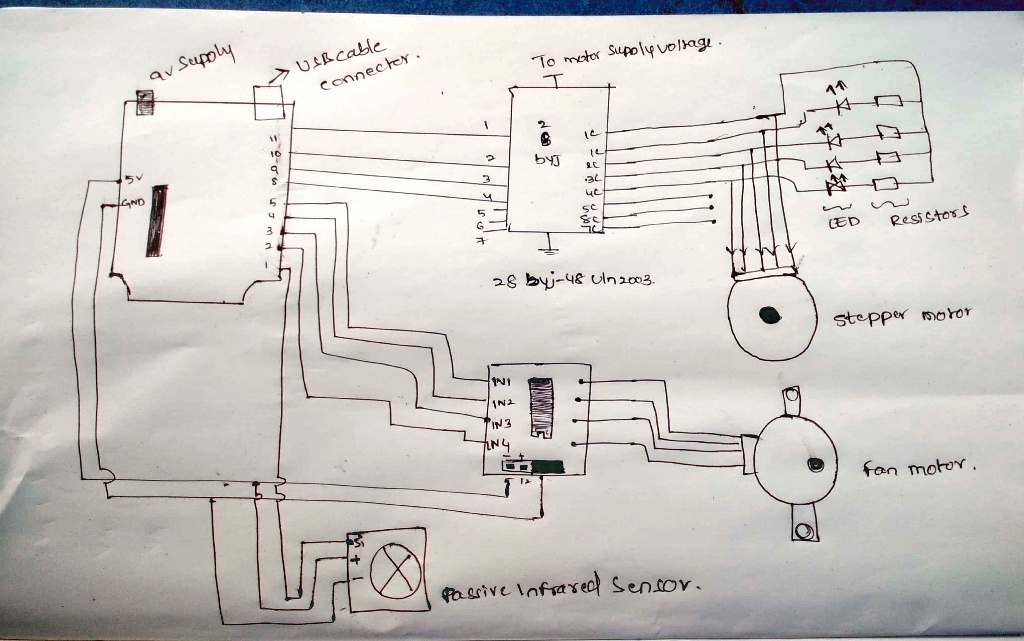 9v Supply
USB cable
connector.
To motor Supply voltage.
11
10
9
8
5
4
3
2
1
5V
GND
1
2
3
4
5
6
7
2
8
byJ
1C
1C
2C
3C
4C
5C
6C
7C
LED
Resistors
28 byj-48 Uln2003.
stepper motor
IN1
IN2
IN3
IN4
- +
12
fan motor.
Si
+
-
Passive Infrared Sensor.